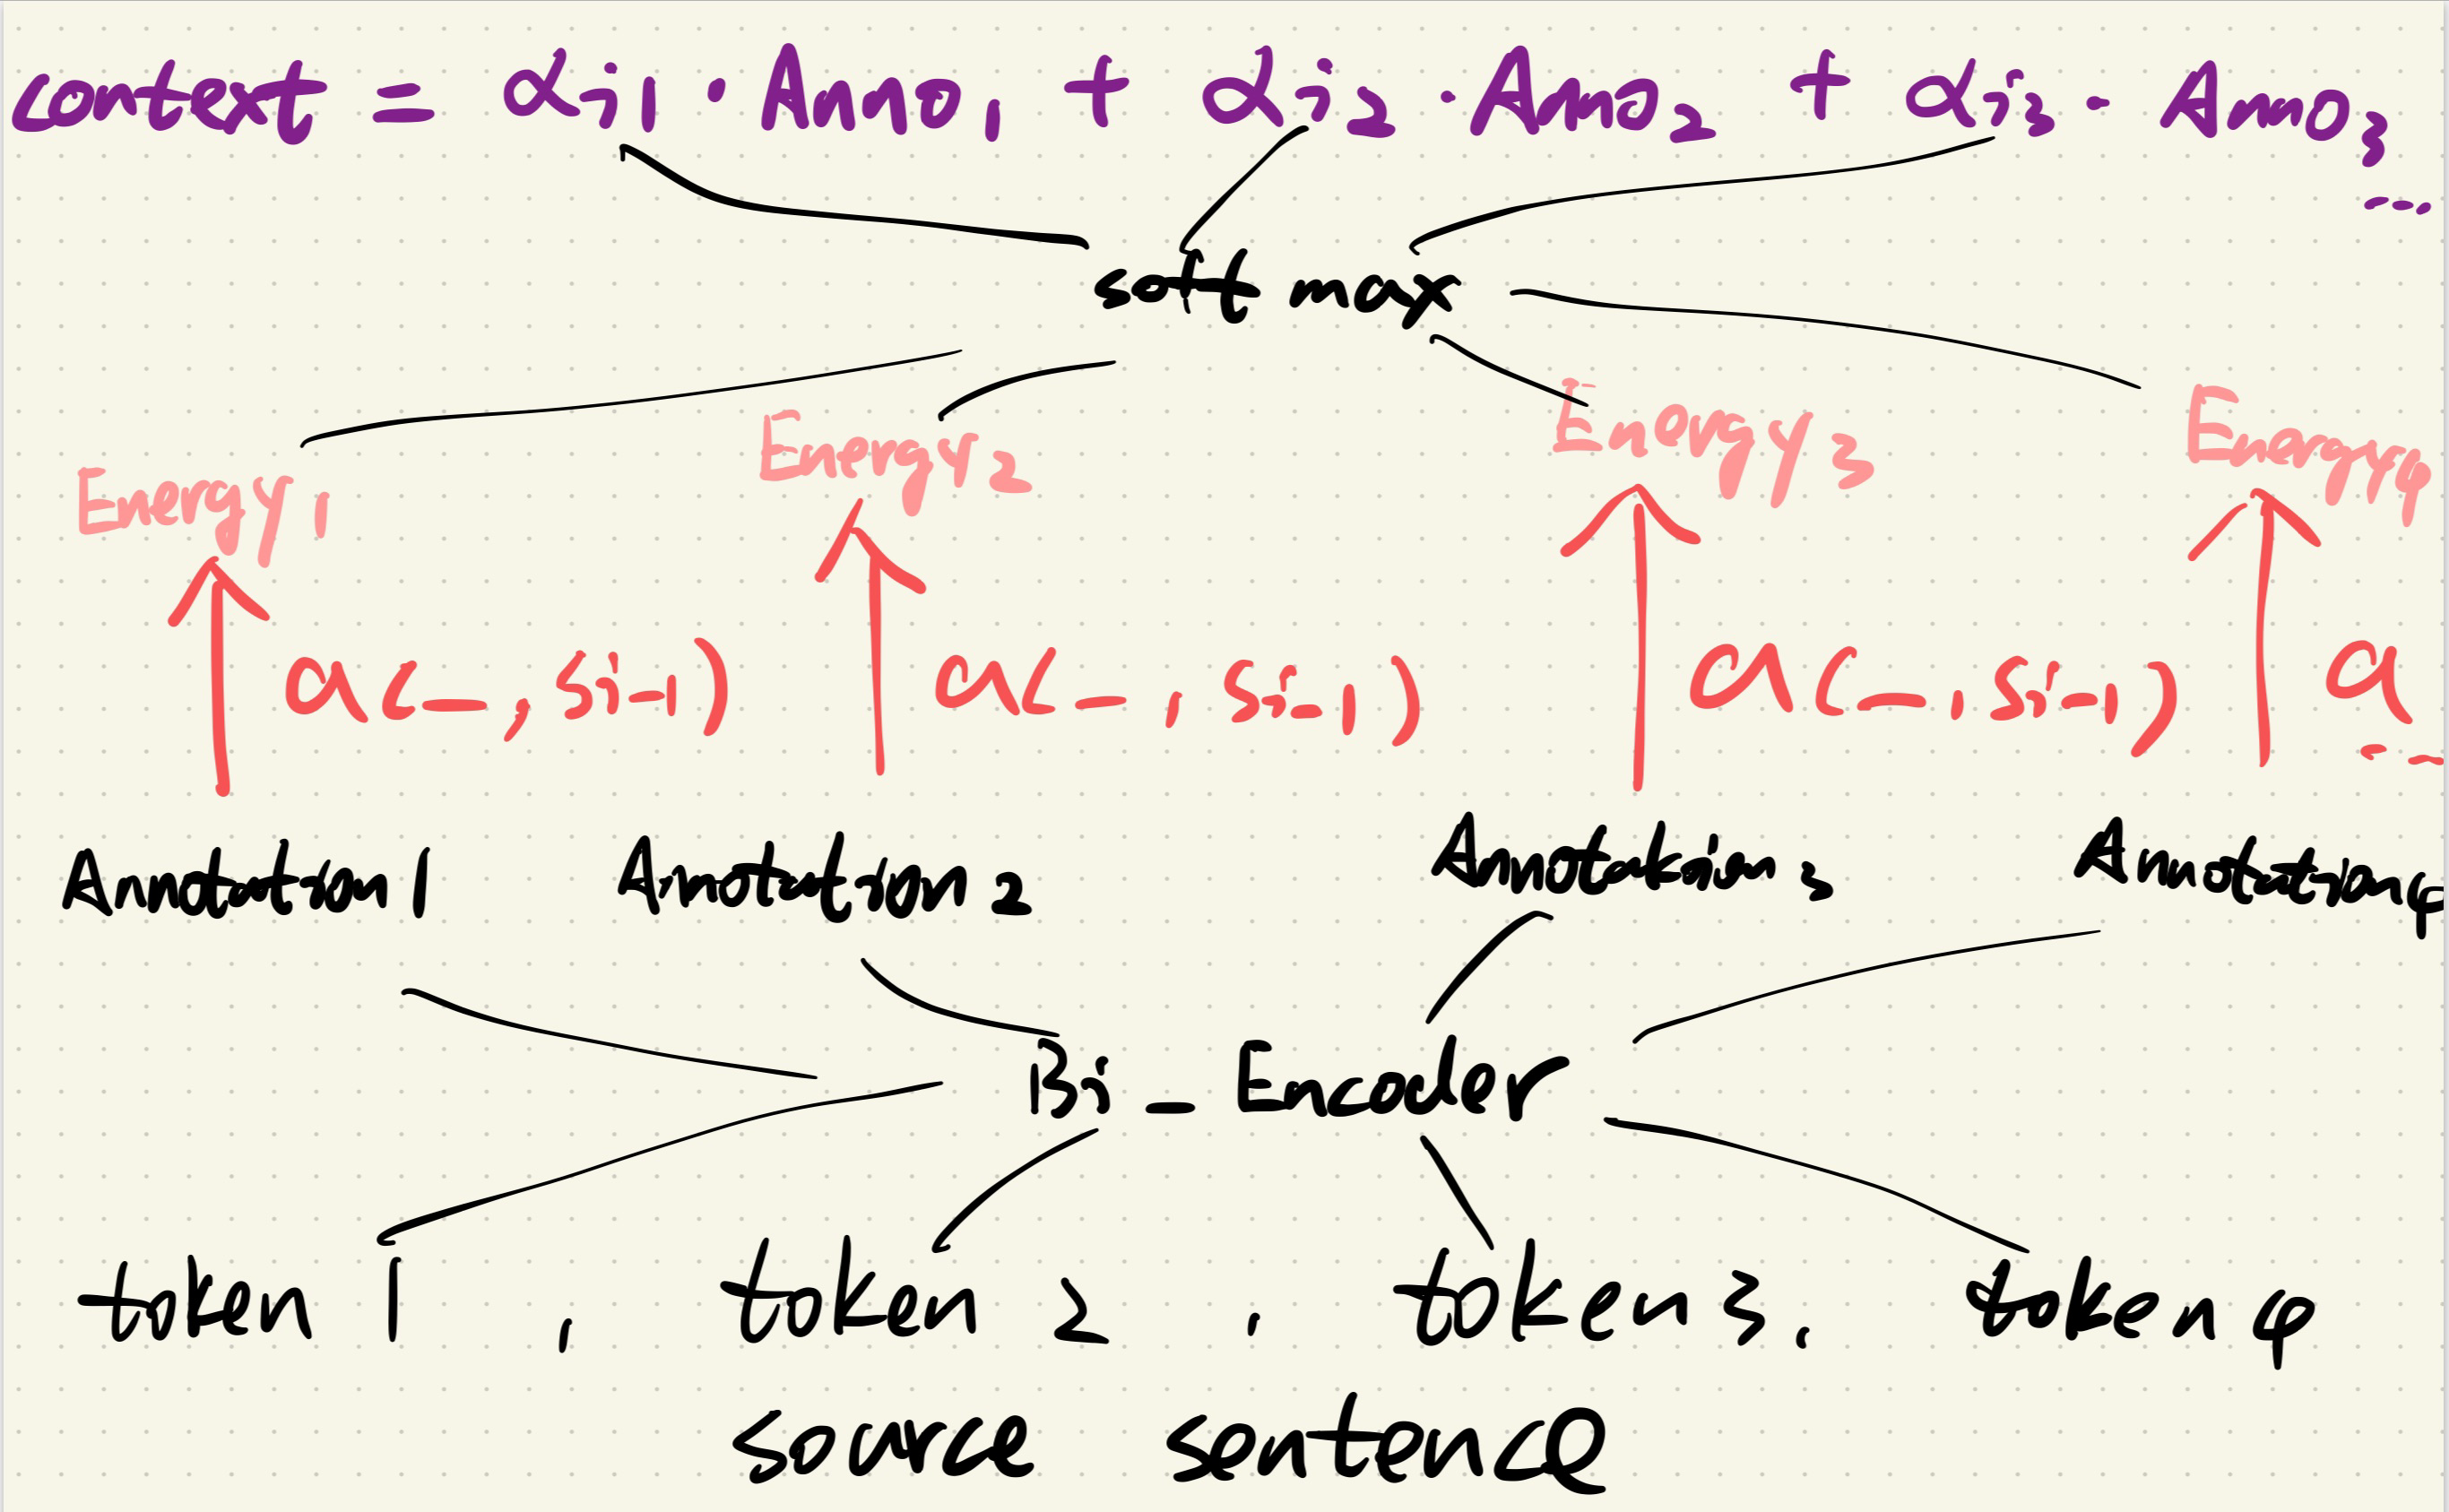 context = αi1 · Anno1 + αi2 · Anno2 + αi3 · Anno3 ---
softmax
Energy1 Energy2 Energy3 Energy4
a(_, si-1) a(_, si-1) a(_, si-1) a --
Annotation1 Annotation2 Annotation3 Annotation4
Bi_Encoder
token 1 , token 2 , token 3 , token 4
source sentence